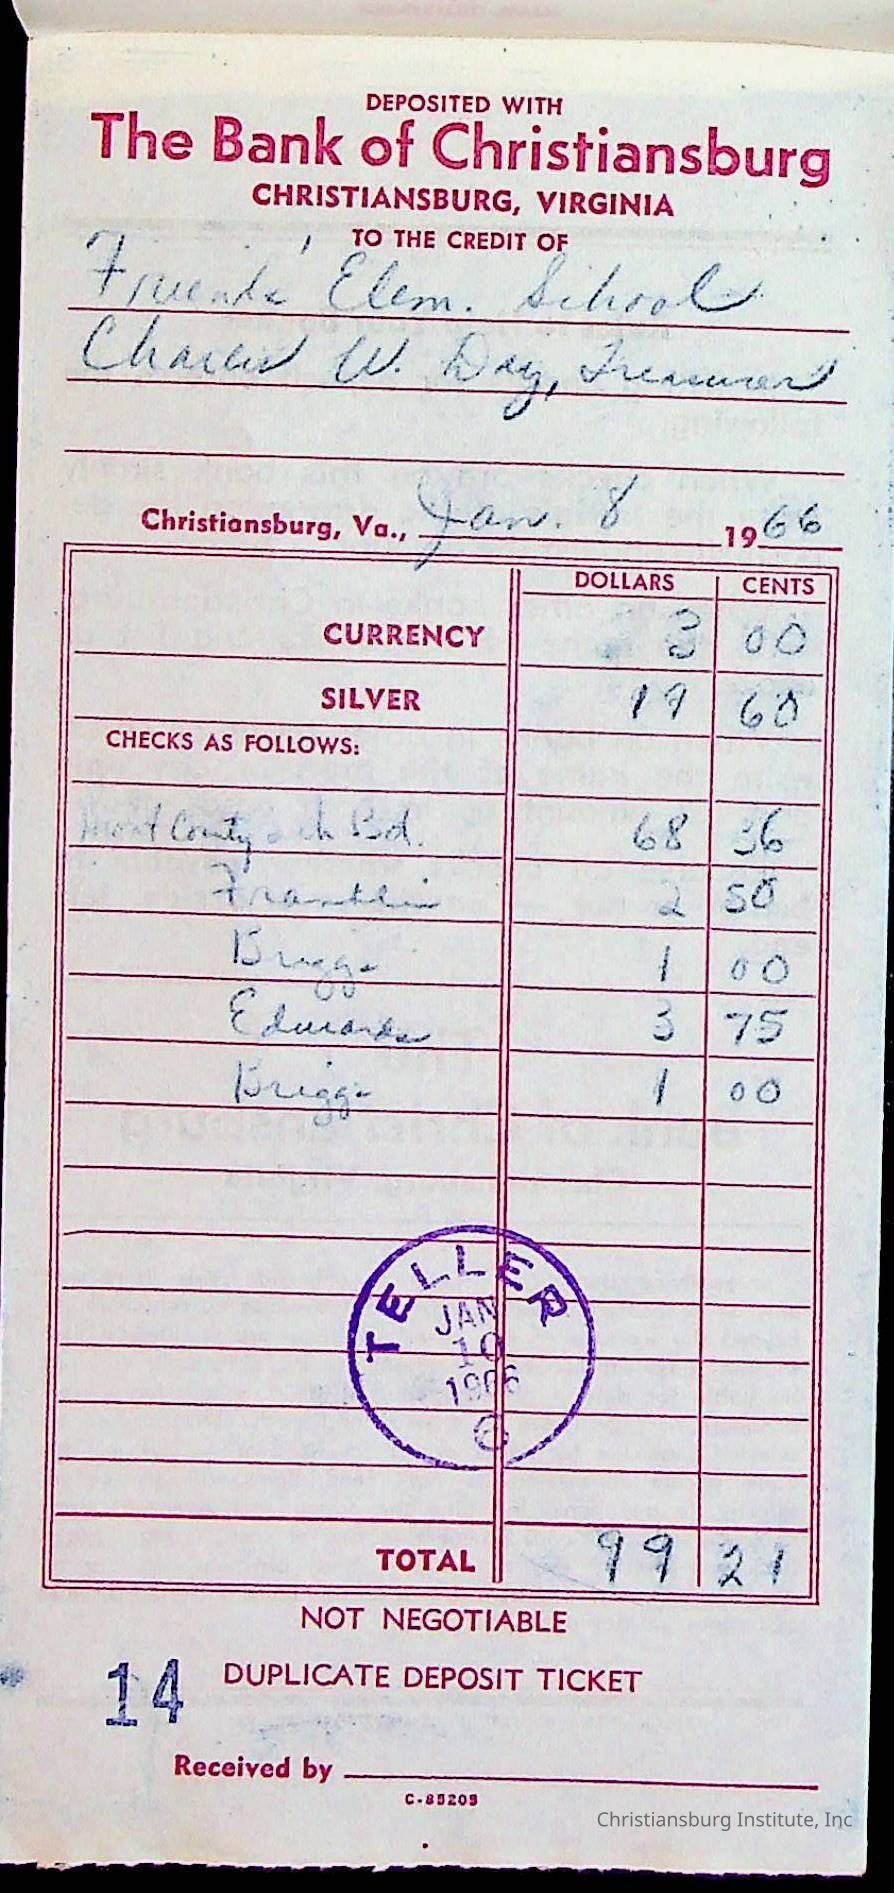 DEPOSITED WITH
The Bank of Christiansburg
CHRISTIANSBURG, VIRGINIA
TO THE CREDIT OF
Friends' Elem. School
Charles W. Day, Treasurer
Christiansburg, Va., Jan. 8 1966
DOLLARS CENTS
CURRENCY 3 00
SILVER 19 60
CHECKS AS FOLLOWS:
Mont County Sch Bd. 68 36
Franklin 2 50
Briggs 1 00
Edwards 3 75
Briggs 1 00
TELLER
JAN
10
1966
6
TOTAL 99 21
NOT NEGOTIABLE
14 DUPLICATE DEPOSIT TICKET
Received by
C-85205
Christiansburg Institute, Inc